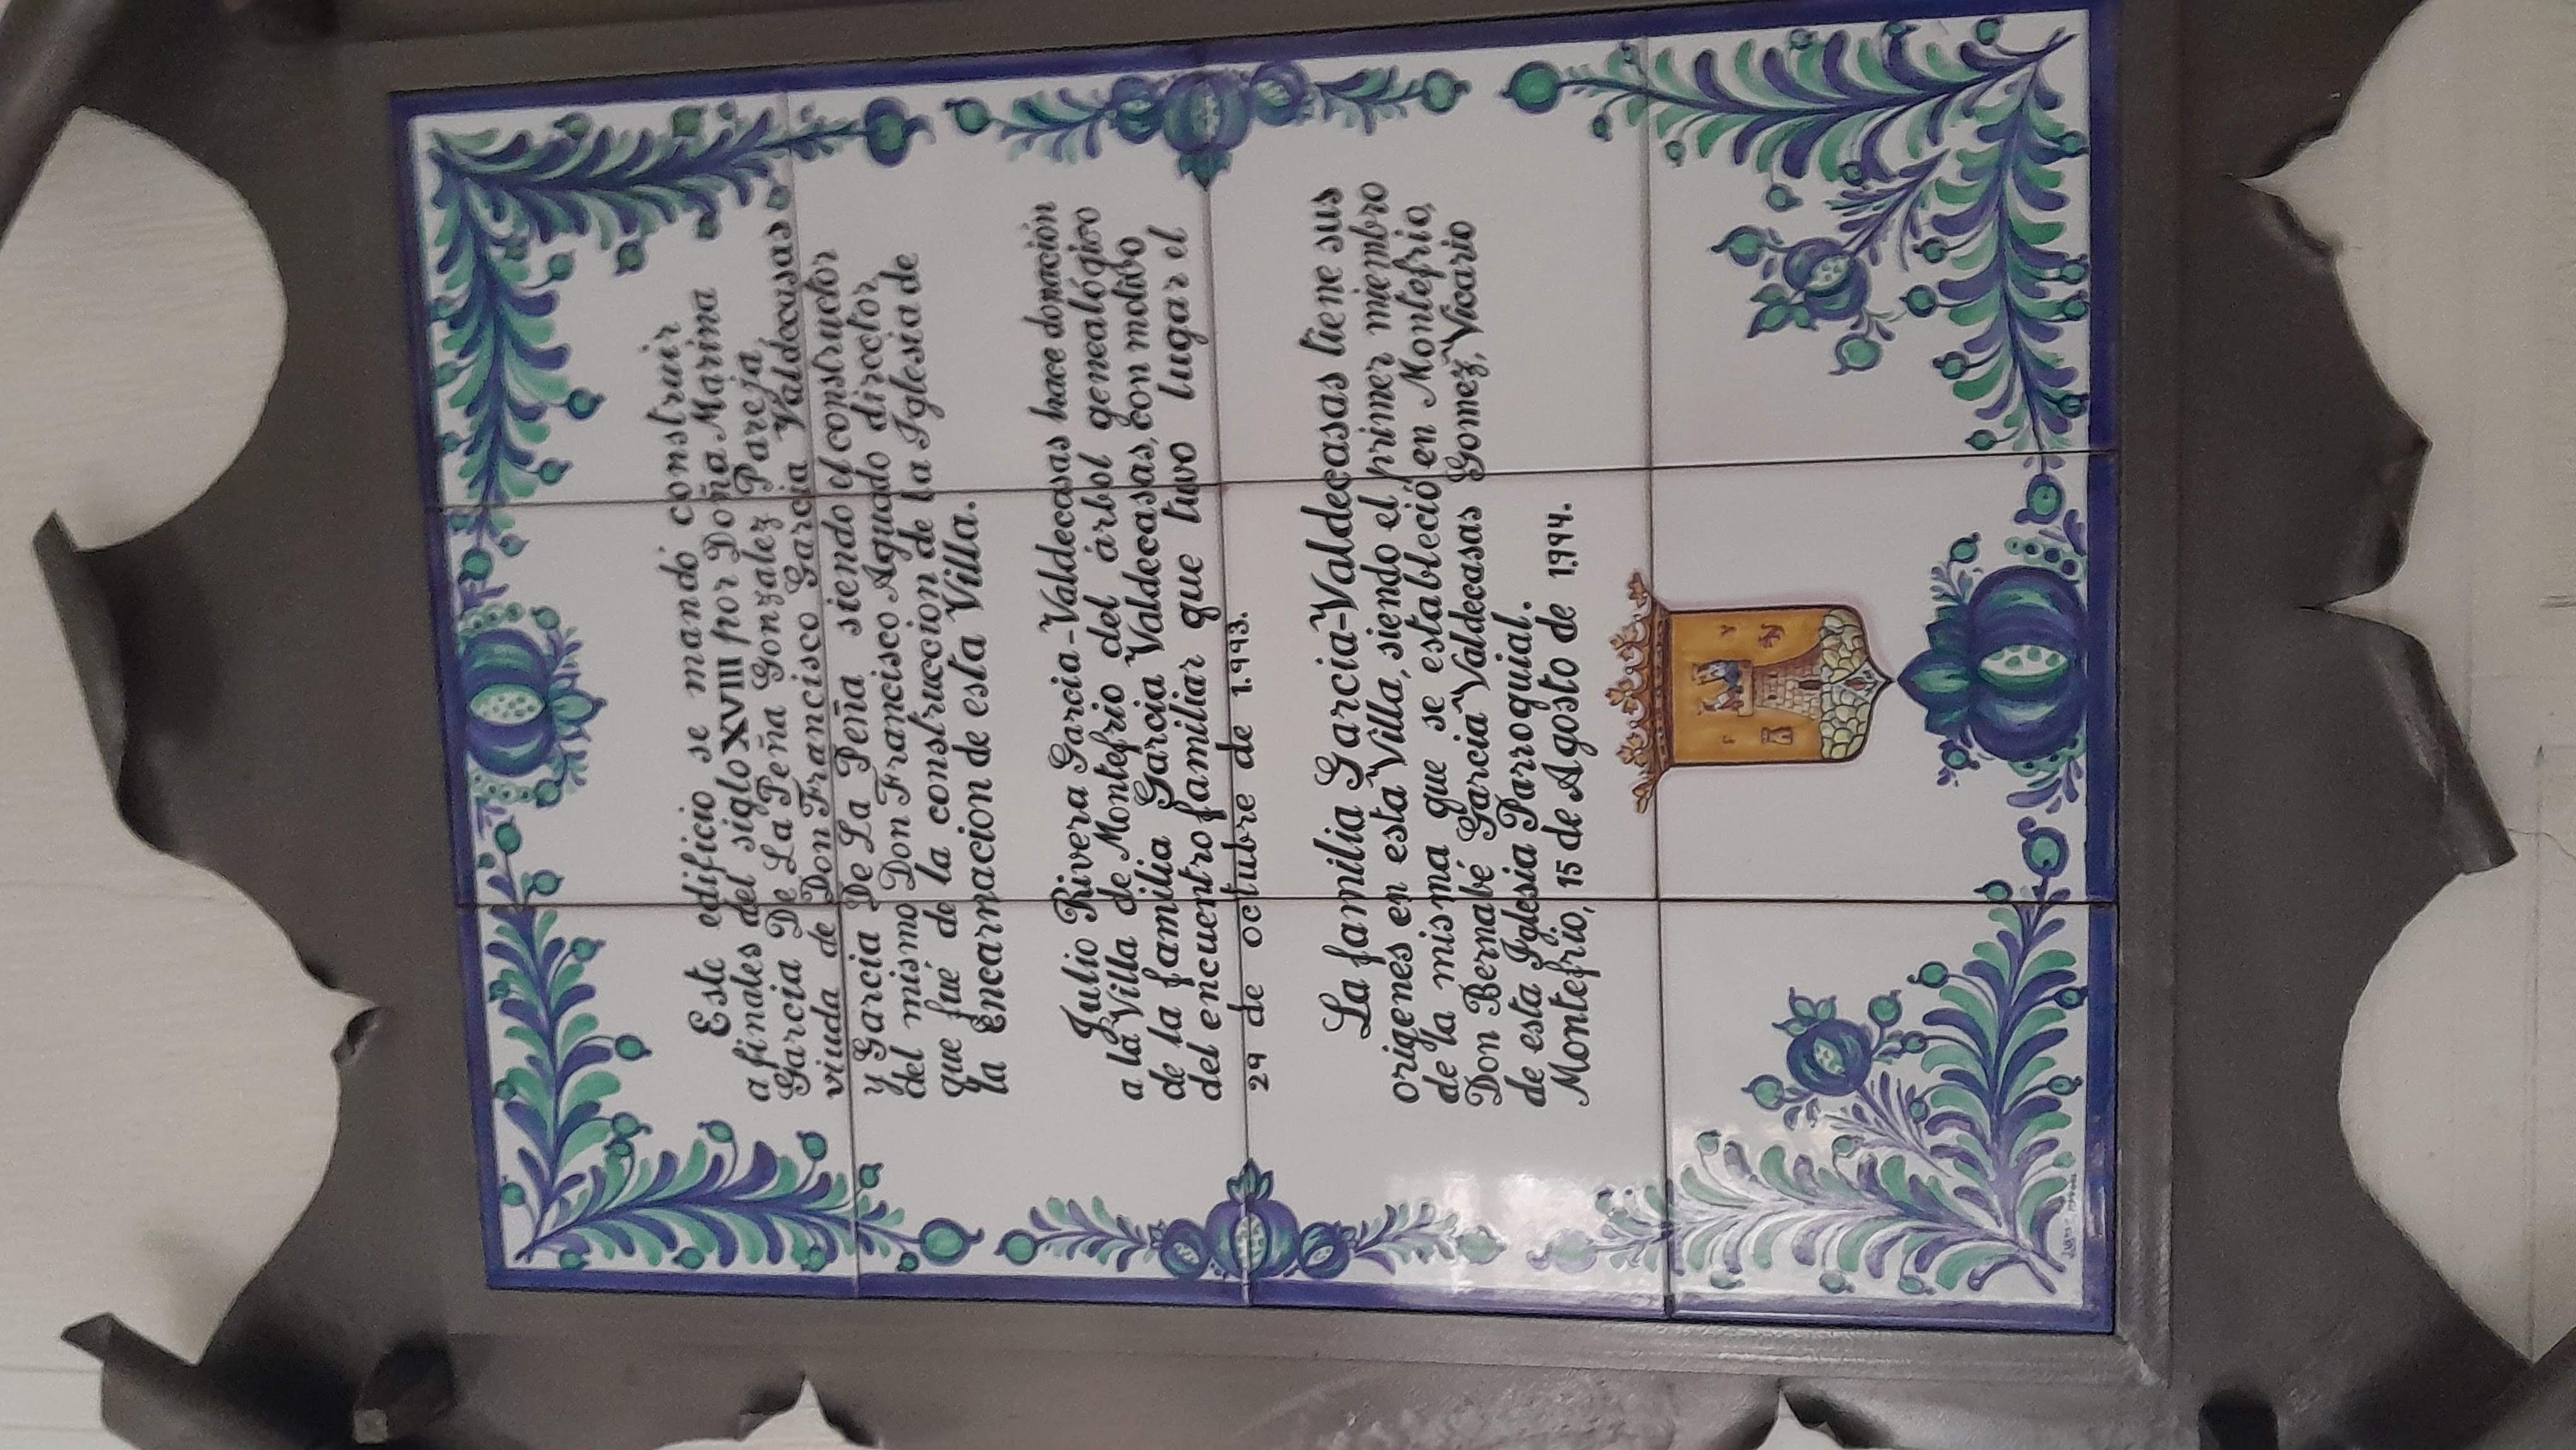 Este edificio se mandó construir
a finales del siglo XVIII por Doña Marina
Garcia De La Peña Gonzalez Pareja,
viuda de Don Francisco Garcia Valdecasas
y Garcia De La Peña siendo el constructor
del mismo Don Francisco Aguado director
que fué de la construccion de la Iglesia de
la Encarnacion de esta Villa.
Julio Rivera Garcia-Valdecasas hace donación
a la Villa de Montefrio del árbol genealógico
de la familia Garcia Valdecasas, con motivo
del encuentro familiar que tuvo lugar el
29 de octubre de 1.993.
La familia Garcia-Valdecasas tiene sus
origenes en esta Villa, siendo el primer miembro
de la misma que se estableció en Montefrio,
Don Bernabé Garcia Valdecasas Gomez, Vicario
de esta Iglesia Parroquial.
Montefrio, 15 de Agosto de 1.994.
F Y